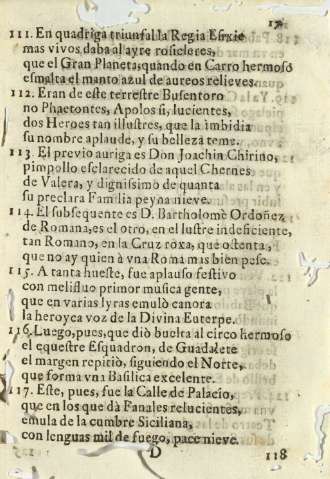 17
111. En quadriga triunfal la Regia Esrxie
mas vivos daba al ayre rosicleres,
que el Gran Planeta, quando en Carro hermoso
esmalta el manto azul de aureos relieves.
112. Eran de este terrestre Busentoro
no Phaetontes, Apolos si, lucientes,
dos Heroes tan illustres, que la imbidia
su nombre aplaude, y su belleza teme.
113. El previo auriga es Don Joachin Chirino,
pimpollo esclarecido de aquel Chernes
de Valera, y dignissimo de quanta
su preclara Familia peyna nieve.
114. El subsequente es D. Bartholomè Ordoñez
de Romana, es el otro, en el lustre indeficiente,
tan Romano, en la Cruz roxa, que ostenta,
que no ay quien à vna Roma mas bien pese.
115. A tanta hueste, fue aplauso festivo
con melifluo primor musica gente,
que en varias lyras emulò canora
la heroyca voz de la Divina Euterpe.
116. Luego, pues, que diò buelta al circo hermoso
el equestre Esquadron, de Guadalete
el margen repitiò, siguiendo el Norte,
que forma vna Basilica excelente.
117. Este, pues, fue la Calle de Palacio,
que en los que dà Fanales relucientes,
emula de la cumbre Siciliana,
con lenguas mil de fuego, pace nieve.
D 118